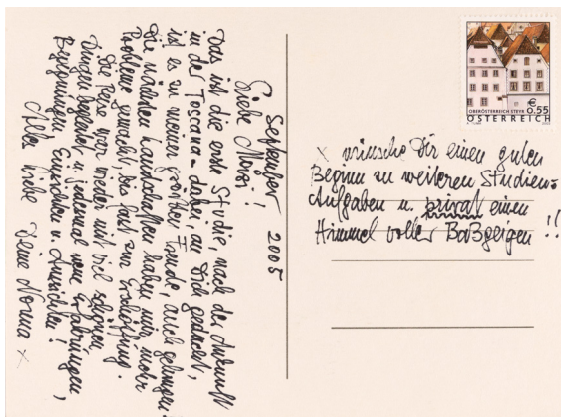 September 2005
Liebe Novei!
Das ist die erste Studie, nach der Ankunft
in der Toscana - dabei, an Dich gedacht,
ist es zu meiner größten Freude, auch gelungen.
Die nächsten Landschaften haben mir mehr
Probleme gemacht, bis fast zur Erschöpfung.
Die Reise war wieder mit viel schönen
Dingen begleitet u. jedesmal neue Erfahrungen,
Begegnungen, Einsichten u. Aussichten!
Alles Liebe Deine Norma x
€
0,55
OBERÖSTERREICH STEYR
ÖSTERREICH
x wünsche Dir einen guten
Beginn zu weiteren Studiens
Aufgaben u. privat einen
Himmel voller Baßgeigen!!